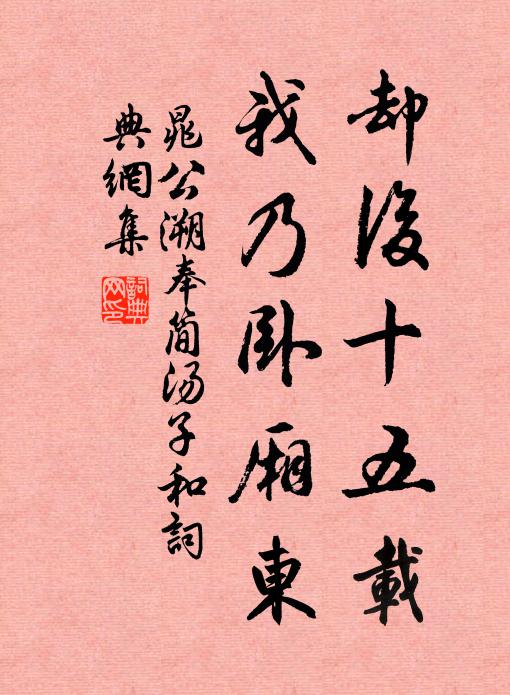 却後十五載
我乃卧廂東
晁公溯奉簡湯子和詞
典網集
詞典網印